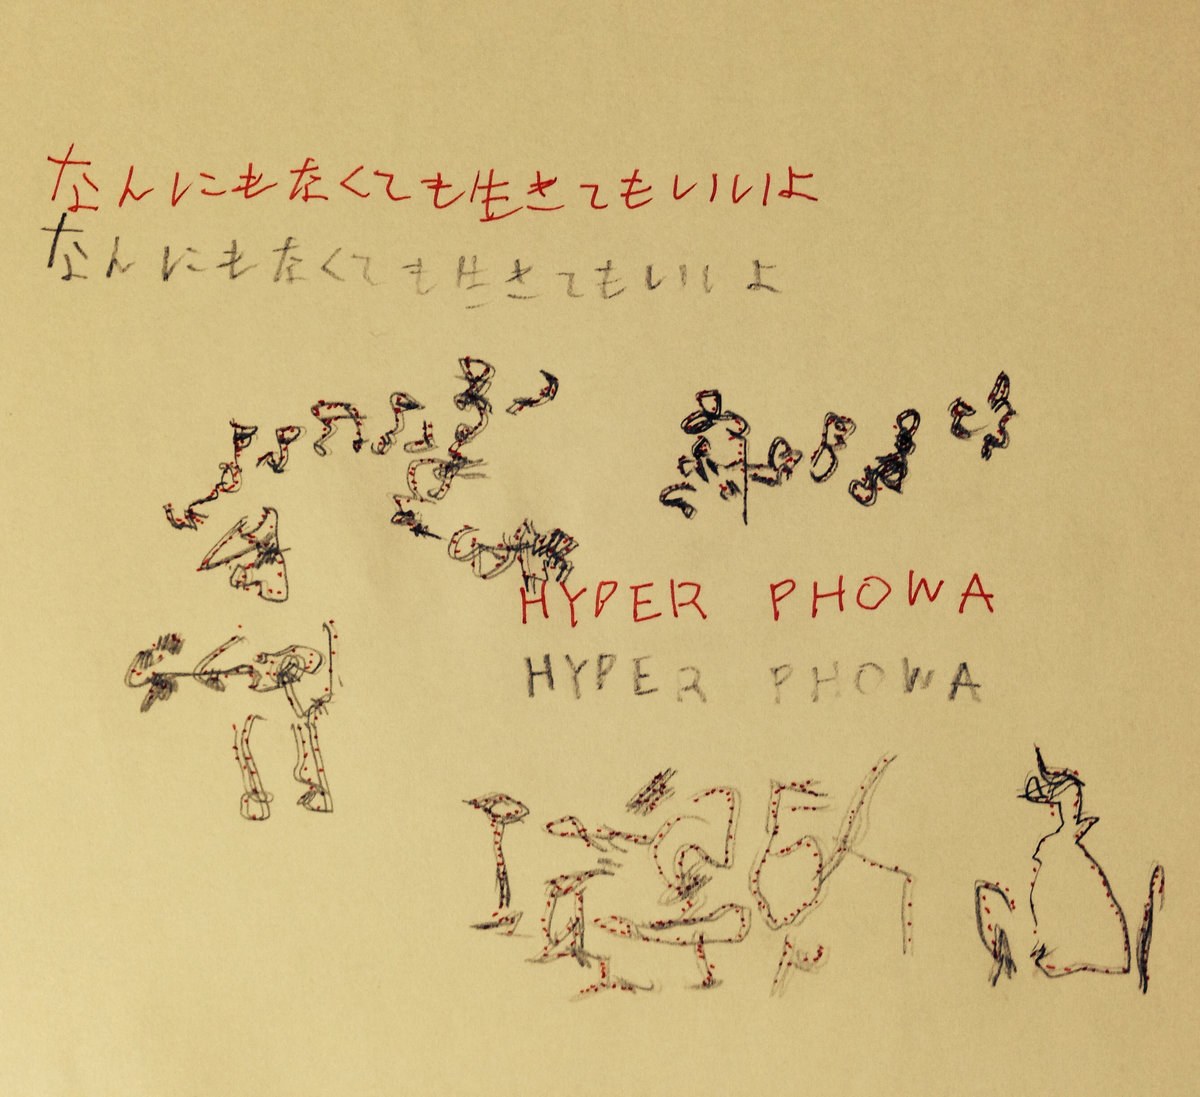 なんにもなくても生きてもいいよ
なんにもなくても生きてもいいよ
HYPER PHOWA
HYPER PHOWA